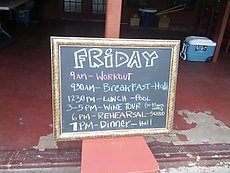 FRiDAY
9AM - WORKOUT
930AM - BREAKFAST - Hall
1230PM - LUNCH - POOL
3-5PM - WINE TOUR
6PM - REHEARSAL -
7PM - Dinner - Hall